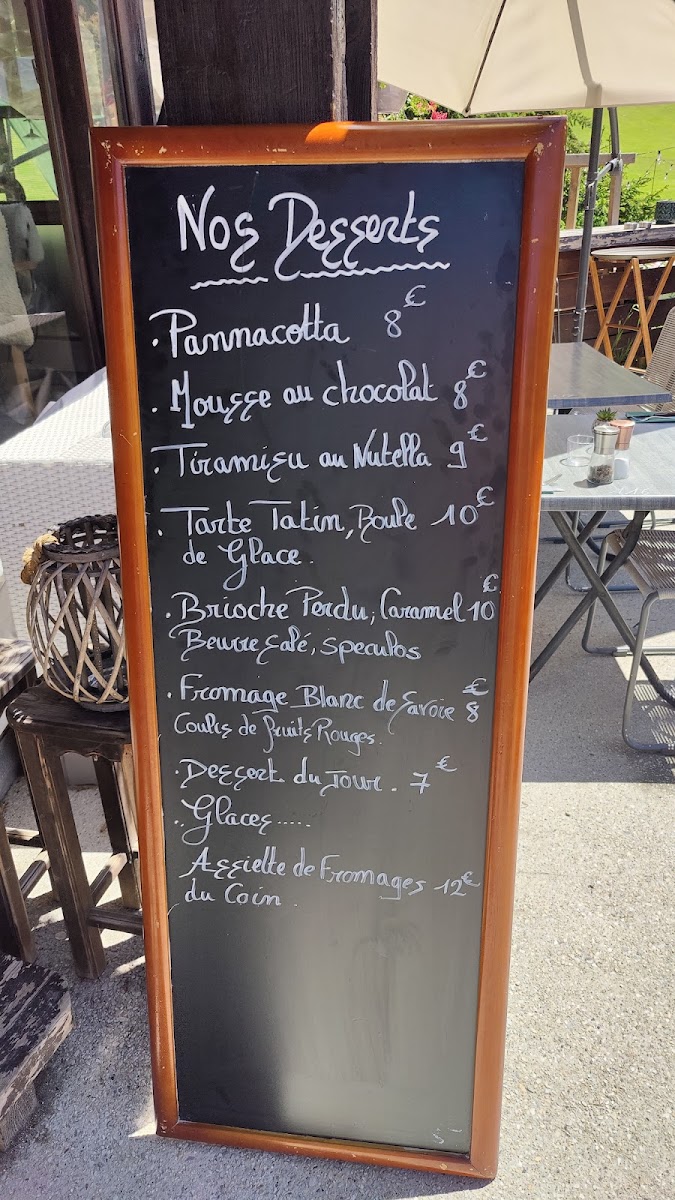 Nos Desserts
. Pannacotta 8€
. Mousse au chocolat 8€
. Tiramisu au Nutella 9€
. Tarte Tatin, Boule 10€
de Glace.
. Brioche Perdu, Caramel 10€
Beurre salé, speculos
. Fromage Blanc de Savoie 8€
Coulis de fruits Rouges.
. Dessert du Jour. 7€
.. Glaces.....
Assiette de Fromages 12€
du Coin.